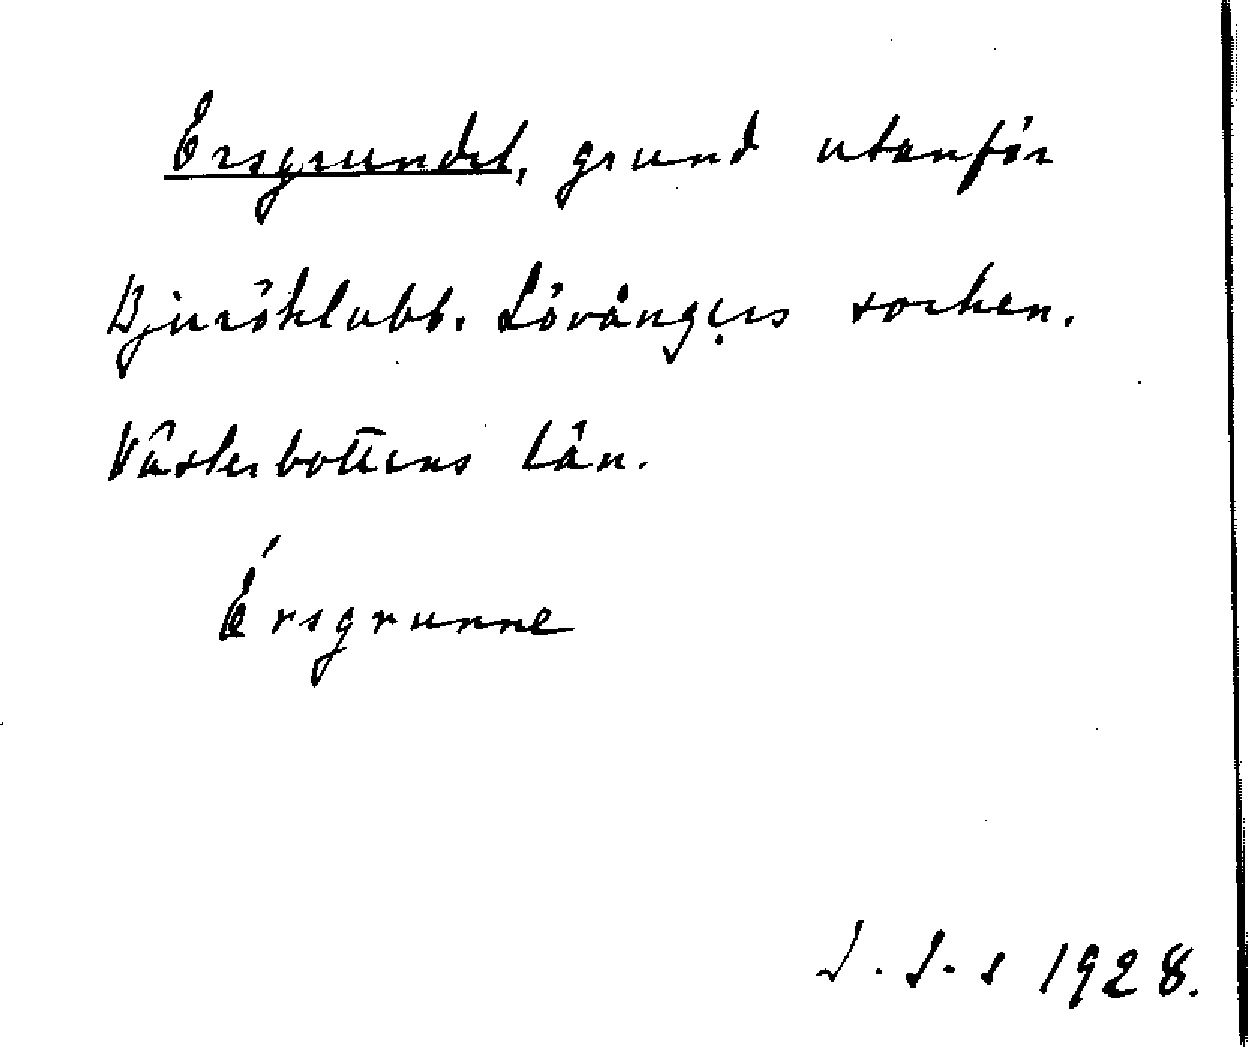 Ersgrundet, grund utanför
Bjuröklubb. Lövångers socken.
Västerbottens län.
Érsgrunne
1928.